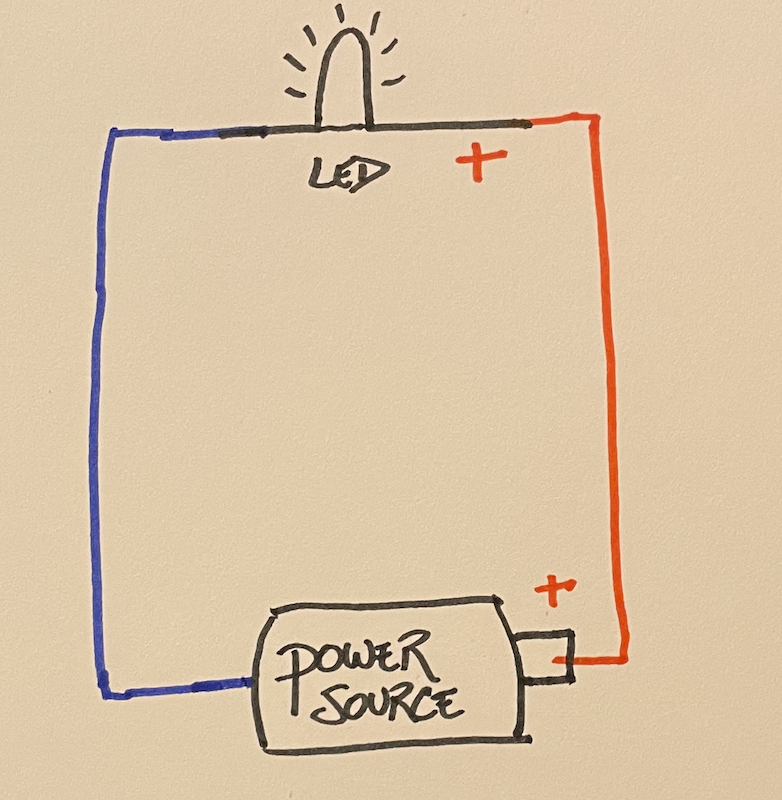 LED
+
+
POWER
SOURCE